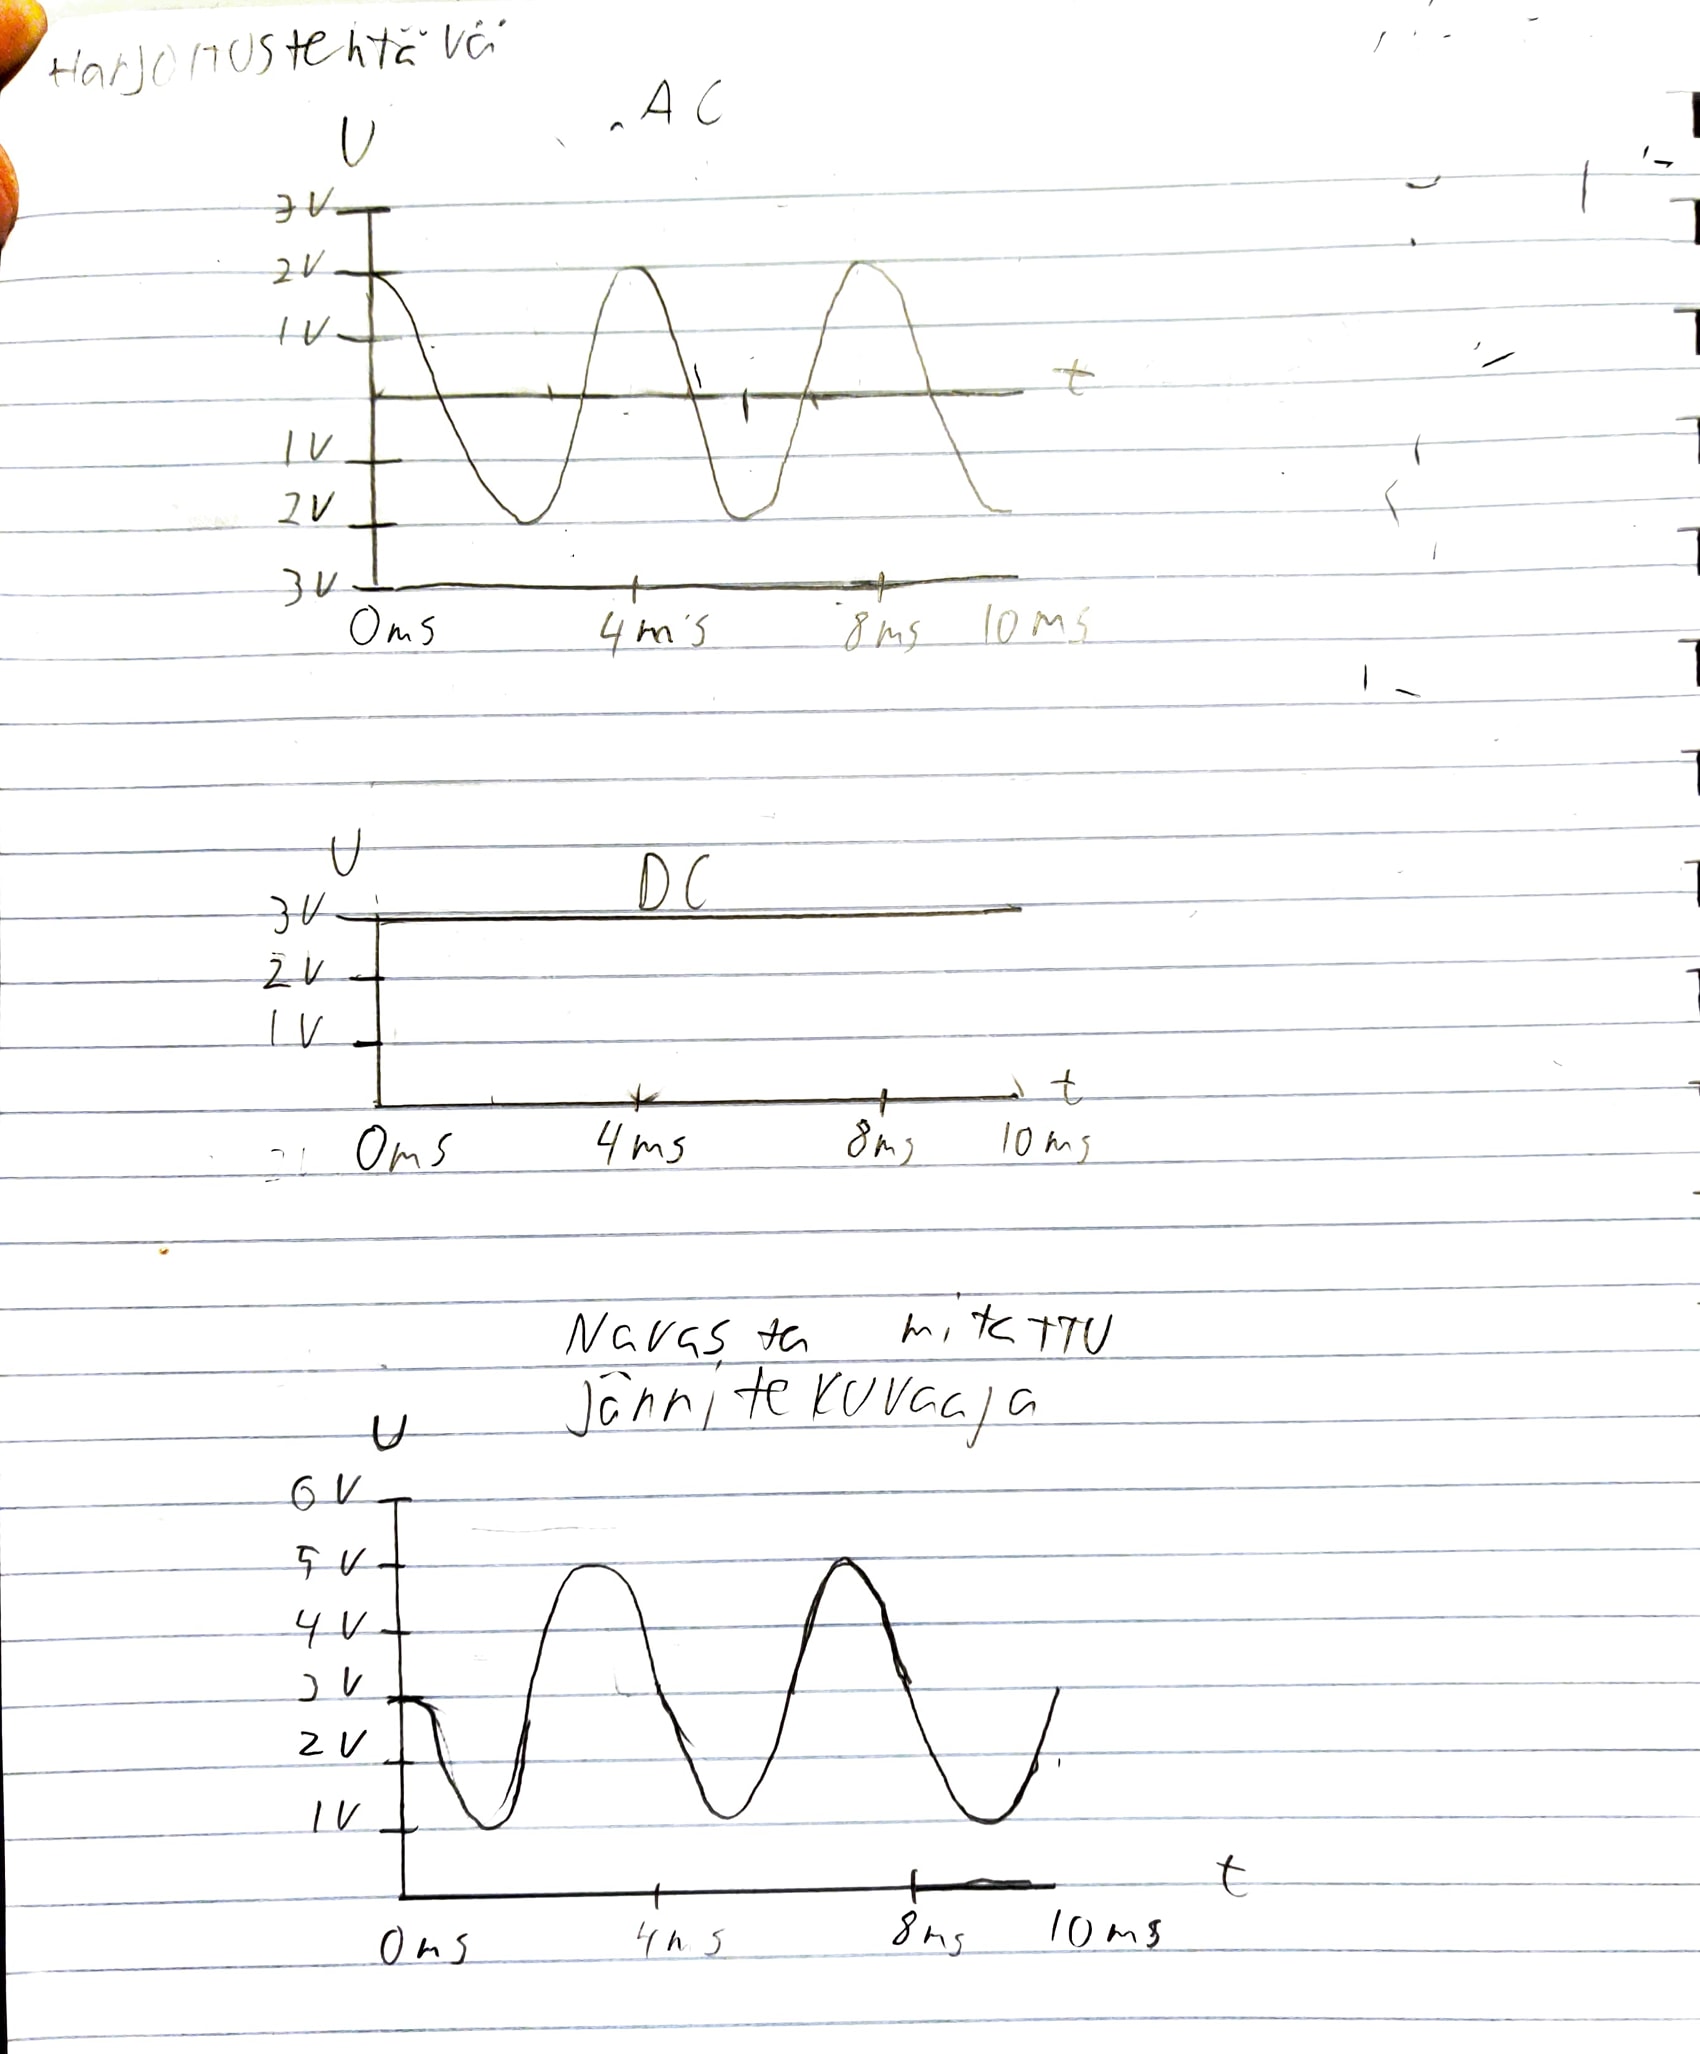 Harjoitustehtävä
AC
U
3V
2V
1V
t
1V
2V
3V
0ms 4ms 8ms 10ms
U
DC
3V
2V
1V
t
0ms 4ms 8ms 10ms
Navasta mitattu
jännitekuvaaja
U
6V
5V
4V
3V
2V
1V
t
0ms 4ms 8ms 10ms